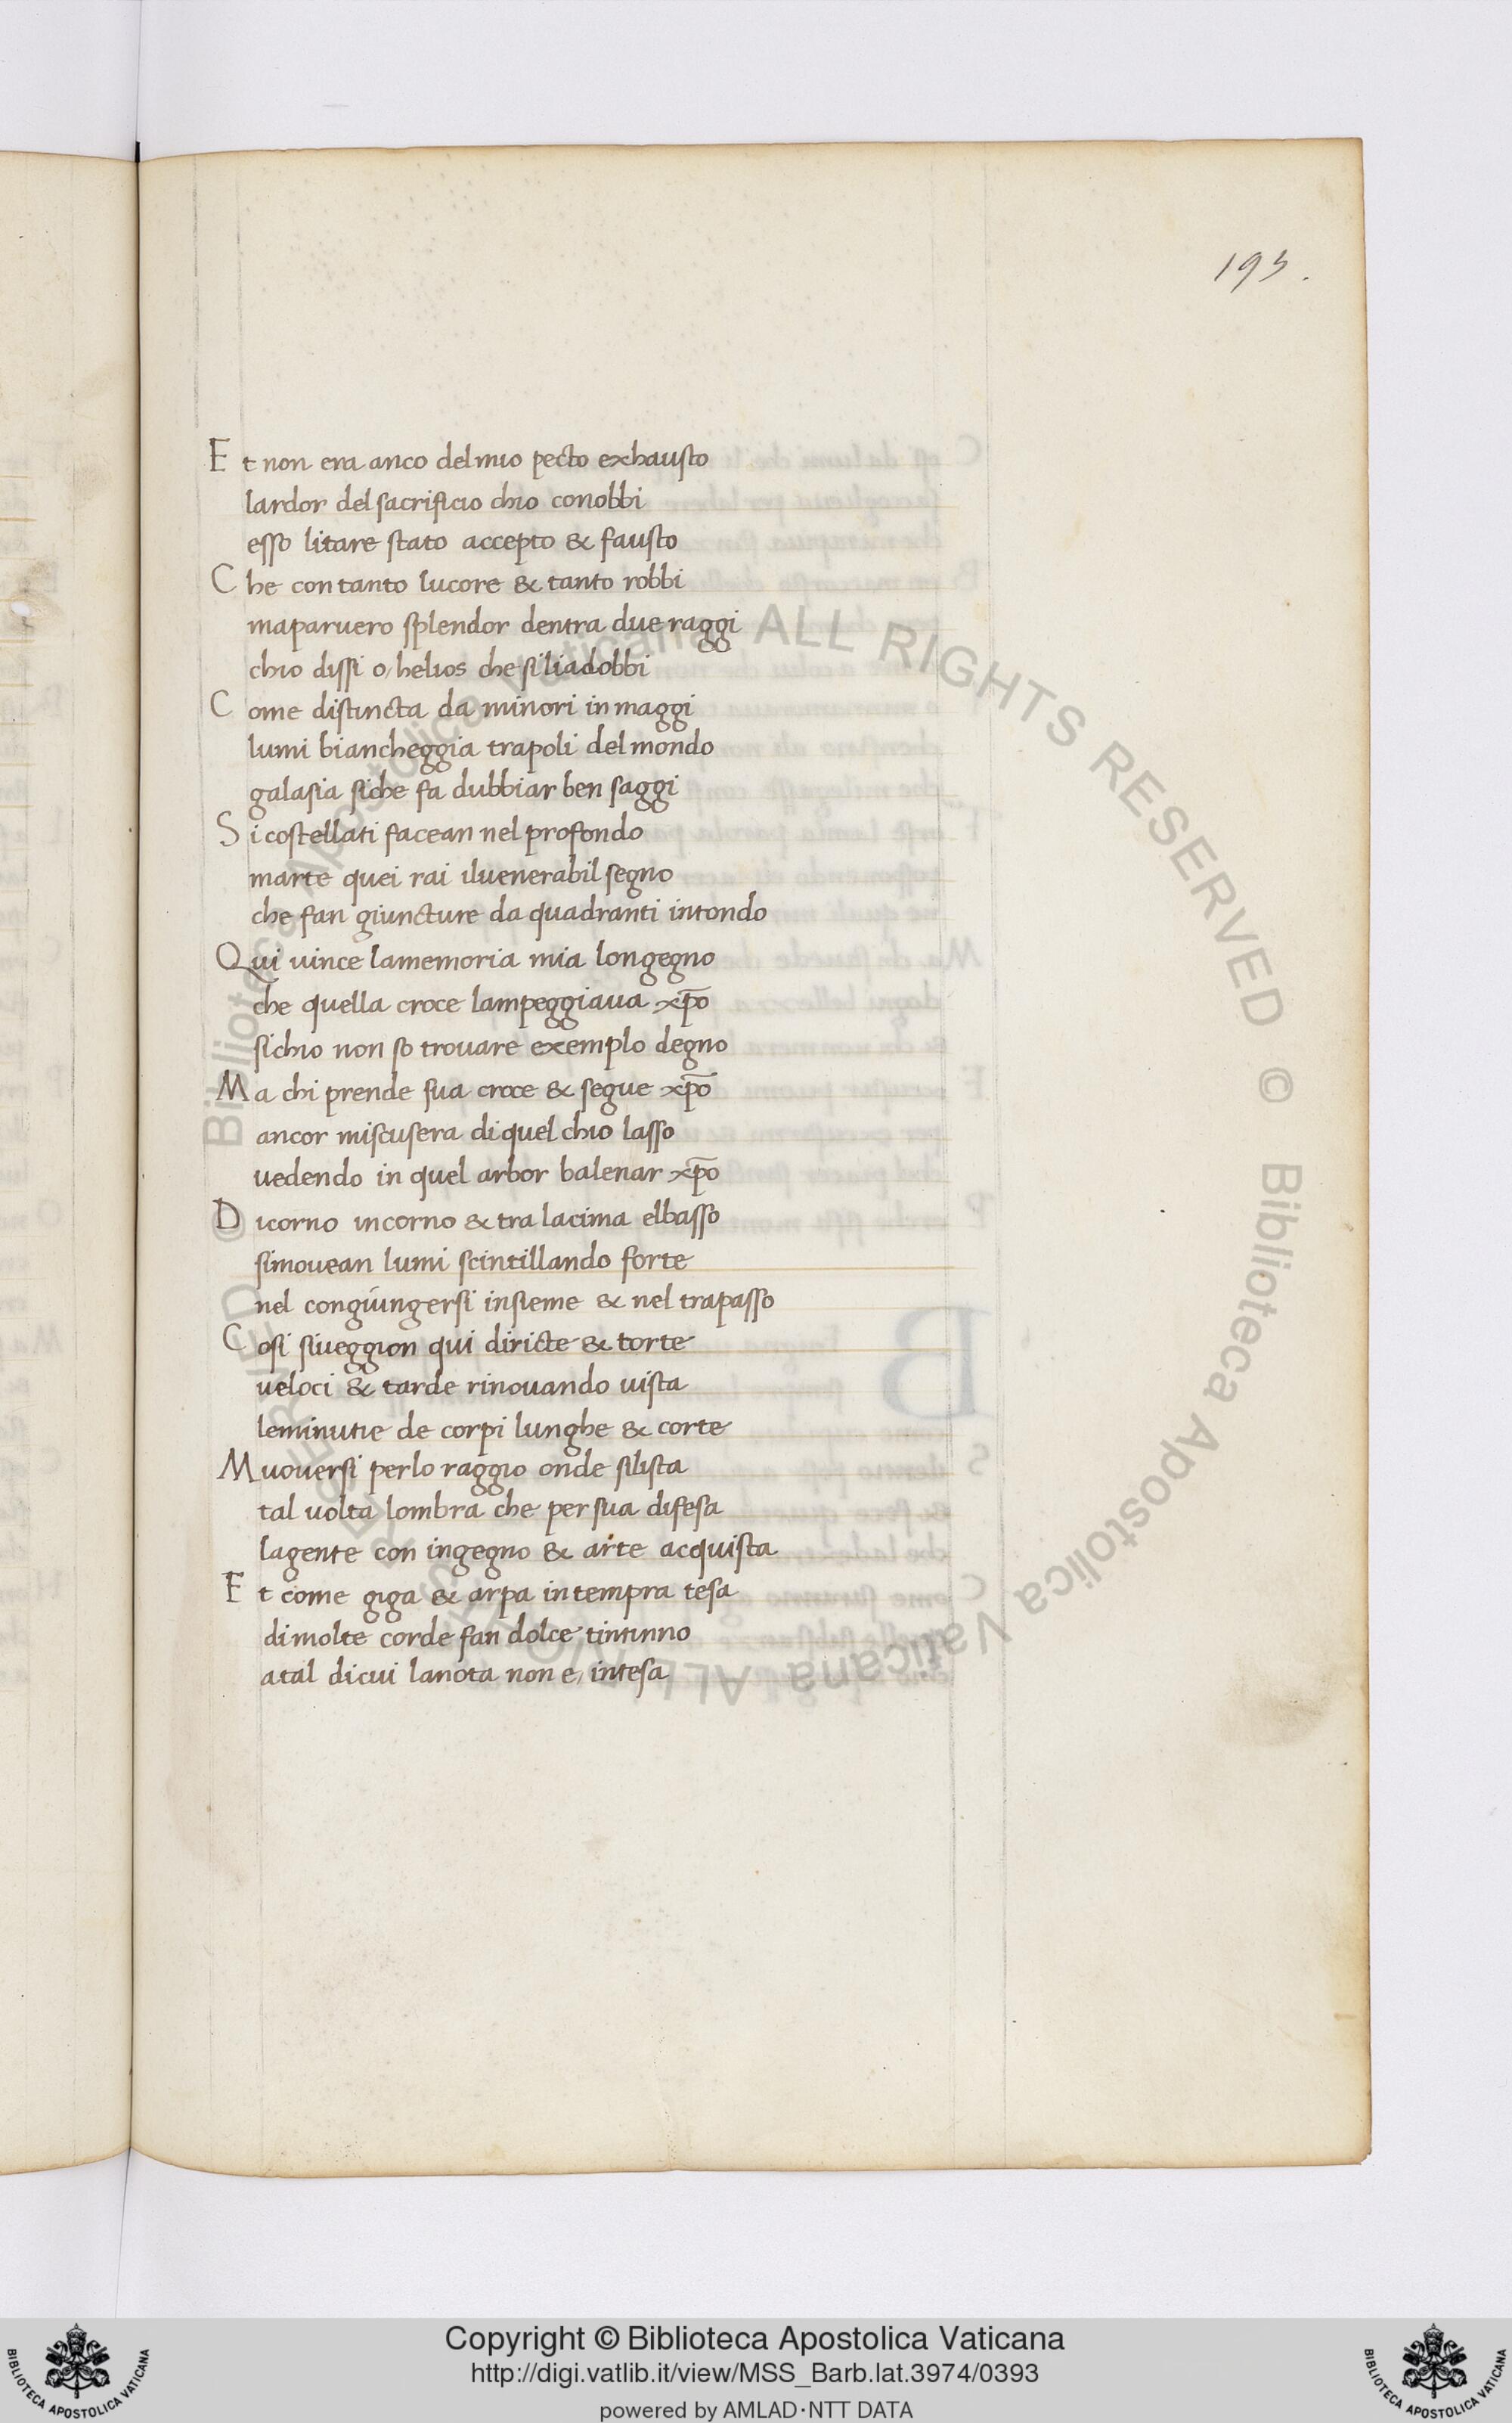 193.
Et non era anco delmio pecto exhausto
lardor del sacrificio chio conobbi
esso litare stato accepto & fausto
Che con tanto lucore & tanto robbi
maparuero splendor dentra due raggi
chio dissi o helios che siliadobbi
Come distincta da minori in maggi
lumi biancheggia trapoli del mondo
galasia siche fa dubbiar ben saggi
Si costellati facean nel profondo
marte quei rai iluenerabil segno
che fan giuncture da quadranti intondo
Qui uince lamemoria mia longegno
che quella croce lampeggiaua xp̄o
sichio non so trouare exemplo degno
Ma chi prende sua croce & segue xp̄o
ancor miscusera di quel chio lasso
uedendo in quel arbor balenar xp̄o
Dicorno incorno & tra lacima elbasso
simouean lumi scintillando forte
nel congiungersi insieme & nel trapasso
Cosi siueggion qui diricte & torte
ueloci & tarde rinouando uista
leminutie de corpi lunghe & corte
Muouersi perlo raggio onde silista
tal uolta lombra che per sua difesa
lagente con ingegno & arte acquista
Et come giga & arpa intempra tesa
dimolte corde fan dolce tintinno
atal dicui lanota non e, intesa
© Biblioteca Apostolica Vaticana ALL RIGHTS RESERVED © Biblioteca Apostolica Vaticana ALL RIGHTS RESERVED
Copyright © Biblioteca Apostolica Vaticana
http://digi.vatlib.it/view/MSS_Barb.lat.3974/0393
powered by AMLAD·NTT DATA
BIBLIOTECA APOSTOLICA VATICANA
BIBLIOTECA APOSTOLICA VATICANA